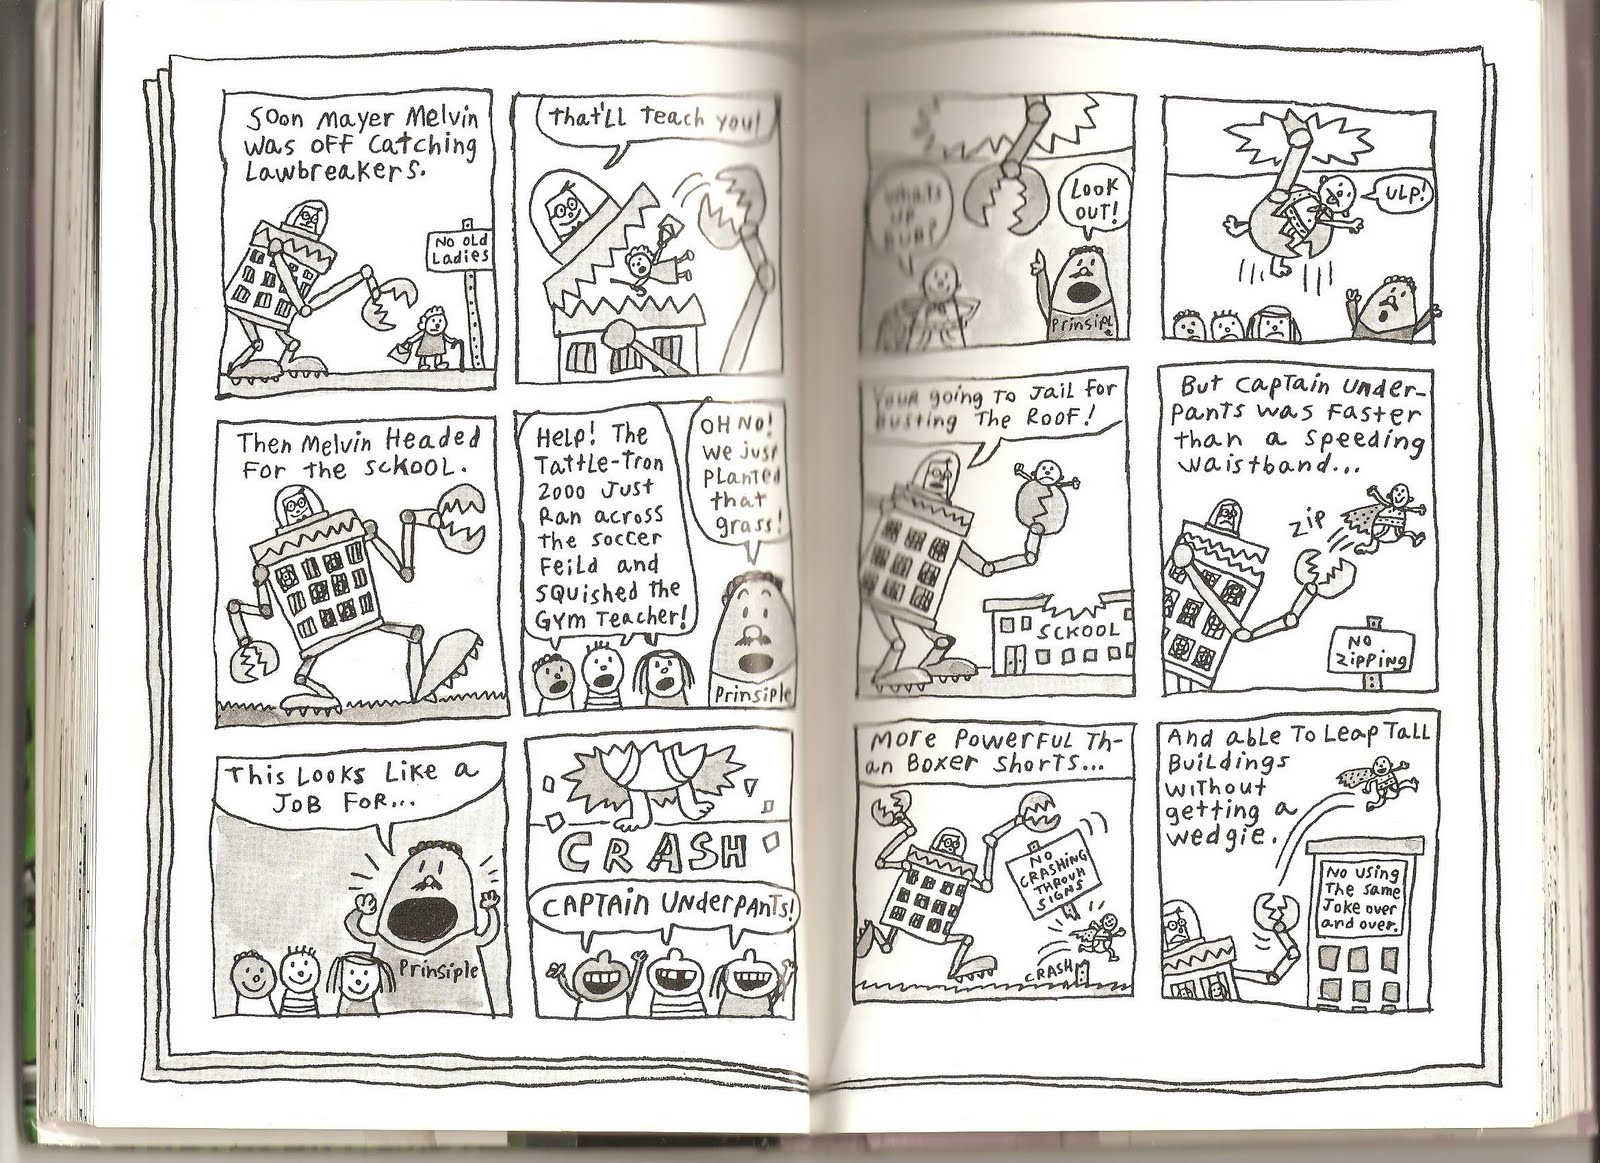 Soon Mayer Melvin
was off catching
Lawbreakers.
No old
Ladies
that'll teach you!
Then Melvin Headed
For the sckool.
Help! The
Tattle-Tron
2000 Just
Ran across
the soccer
Feild and
squished the
Gym Teacher!
OH NO!
we just
planted
that
grass!
Prinsiple
This Looks Like a
Job For...
Prinsiple
CRASH
CAPTain UnderpanTs!
Whats
up
Bub?
Look
Out!
Prinsipl
e
ULP!
Your going To Jail for
Busting The Roof!
SCKOOL
But Captain Under-
pants was Faster
than a speeding
waistband...
Zip
No
Zipping
More Powerful Th-
an Boxer Shorts...
No
Crashing
Through
Signs
CRASH
And able To Leap Tall
Buildings
without
getting a
wedgie.
No using
The same
Joke over
and over.